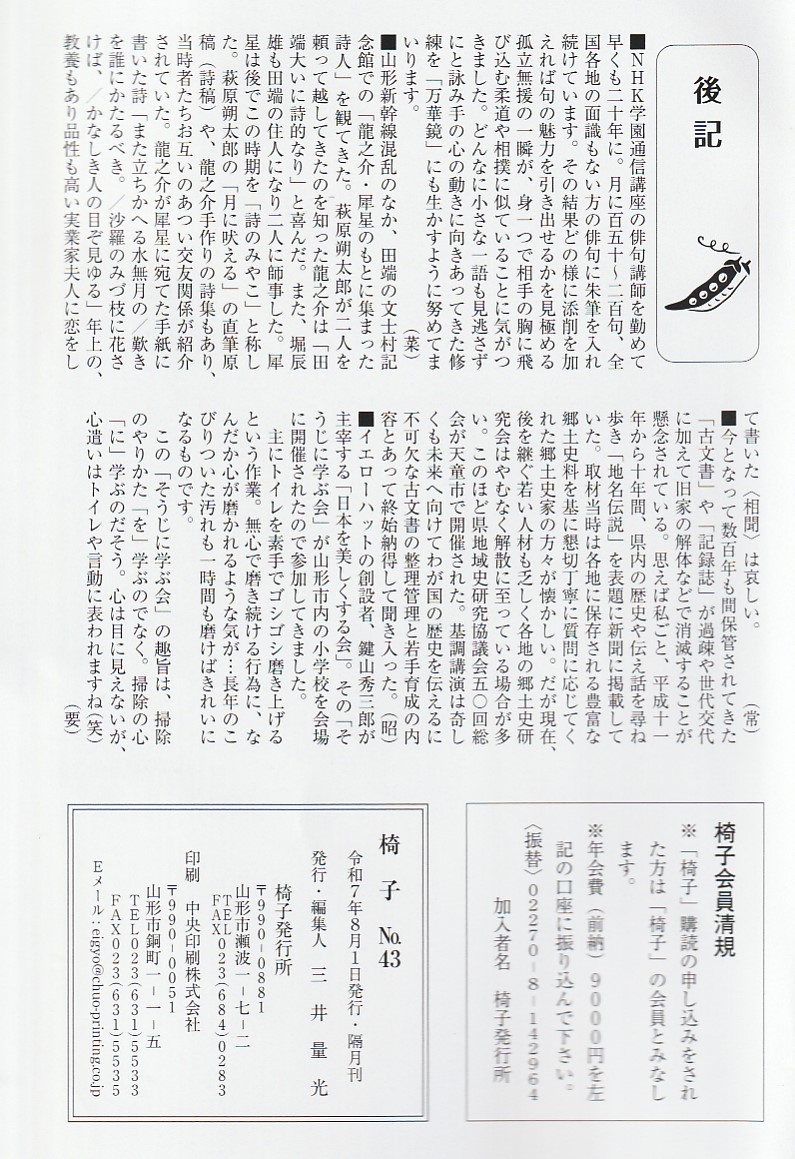 後記
■NHK学園通信講座の俳句講師を勤めて
早くも二十年に。月に百五十～二百句、全
国各地の面識もない方の俳句に朱筆を入れ
続けています。その結果どの様に添削を加
えれば句の魅力を引き出せるかを見極める
孤立無援の一瞬が、身一つで相手の胸に飛
び込む柔道や相撲に似ていることに気がつ
きました。どんなに小さな一語も見逃さず
にと詠み手の心の動きに向きあってきた修
練を「万華鏡」にも生かすように努めてま
いります。　　　　　　　　　　　（菜）
■山形新幹線混乱のなか、田端の文士村記
念館での「龍之介・犀星のもとに集まった
詩人」を観てきた。萩原朔太郎が二人を
頼って越してきたのを知った龍之介は「田
端大いに詩的なり」と喜んだ。また、堀辰
雄も田端の住人になり二人に師事した。犀
星は後でこの時期を「詩のみやこ」と称し
た。萩原朔太郎の「月に吠える」の直筆原
稿（詩稿）や、龍之介手作りの詩集もあり、
当時者たちお互いのあつい交友関係が紹介
されていた。龍之介が犀星に宛てた手紙に
書いた詩「また立ちかへる水無月の／歎き
を誰にかたるべき。／沙羅のみづ枝に花さ
けば、／かなしき人の目ぞ見ゆる」年上の、
教養もあり品性も高い実業家夫人に恋をし
て書いた〈相聞〉は哀しい。　　　（常）
■今となって数百年も間保管されてきた
「古文書」や「記録誌」が過疎や世代交代
に加えて旧家の解体などで消滅することが
懸念されている。思えば私ごと、平成十一
年から十年間、県内の歴史や伝え話を尋ね
歩き「地名伝説」を表題に新聞に掲載して
いた。取材当時は各地に保存される豊富な
郷土史料を基に懇切丁寧に質問に応じてく
れた郷土史家の方々が懐かしい。だが現在、
後を継ぐ若い人材も乏しく各地の郷土史研
究会はやむなく解散に至っている場合が多
い。このほど県地域史研究協議会五〇回総
会が天童市で開催された。基調講演は奇し
くも未来へ向けてわが国の歴史を伝えるに
不可欠な古文書の整理管理と若手育成の内
容とあって終始納得して聞き入った。（昭）
■イエローハットの創設者、鍵山秀三郎が
主宰する「日本を美しくする会」。その「そ
うじに学ぶ会」が山形市内の小学校を会場
に開催されたので参加してきました。
　主にトイレを素手でゴシゴシ磨き上げる
という作業。無心で磨き続ける行為に、な
んだか心が磨かれるような気が…長年のこ
びりついた汚れも一時間も磨けばきれいに
なるものです。
　この「そうじに学ぶ会」の趣旨は、掃除
のやりかた「を」学ぶのでなく。掃除の心
「に」学ぶのだそう。心は目に見えないが、
心遣いはトイレや言動に表われますね（笑）
（要）
椅子会員清規
※「椅子」購読の申し込みをされ
た方は「椅子」の会員とみなし
ます。
※年会費（前納）9000円を左
記の口座に振り込んで下さい。
〈振替〉02270-8-142964
加入者名　椅子発行所
椅子 No.43
令和7年8月1日発行・隔月刊
発行・編集人　三井量光
椅子発行所
〒990-0881
山形市瀬波一-七-二
TEL
FAX 023(684)0283
印刷　中央印刷株式会社
〒990-0051
山形市銅町一-一-五
TEL023(631)5533
FAX023(631)5535
Eメール：eigyo@chuo-printing.co.jp